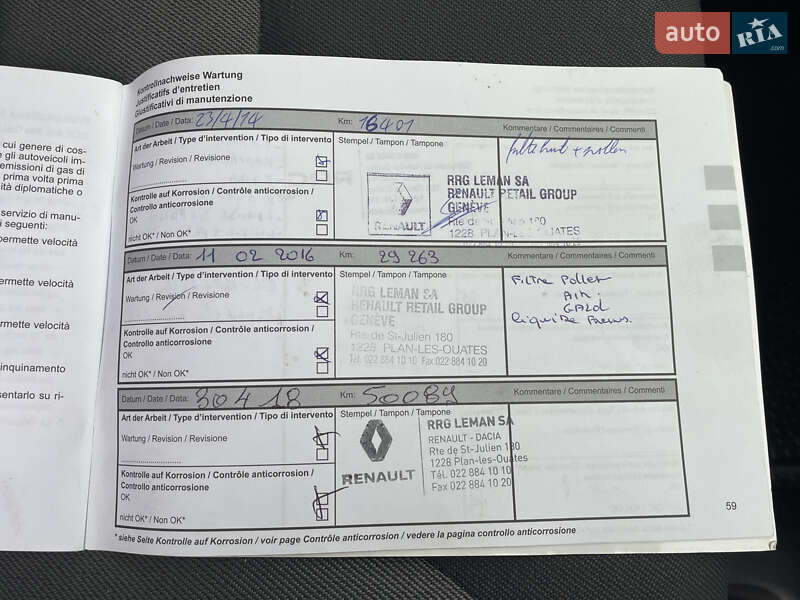 auto RIA .com
Kontrollnachweise Wartung
Justificatifs d'entretien
Giustificativi di manutenzione
cui genere di cos-
e gli autoveicoli im-
emissioni di gas di
prima volta prima
ità diplomatiche o
servizio di manu-
i seguenti:
permette velocità
ermette velocità
rmette velocità
inquinamento
esentarlo su ri-
Datum / Date / Data: 23/4/14 Km: 16401 Kommentare / Commentaires / Commenti
Art der Arbeit / Type d'intervention / Tipo di intervento Stempel / Tampon / Tampone
Wartung / Revision / Revisione
Kontrolle auf Korrosion / Contrôle anticorrosion /
Controllo anticorrosione
OK
nicht OK* / Non OK*
RENAULT
RRG LEMAN SA
RENAULT RETAIL GROUP
GENÈVE
1228 PLAN-LES-OUATES
Datum / Date / Data: 11 02 2016 Km: 29 263 Kommentare / Commentaires / Commenti
Art der Arbeit / Type d'intervention / Tipo di intervento Stempel / Tampon / Tampone
Wartung / Revision / Revisione
Kontrolle auf Korrosion / Contrôle anticorrosion /
Controllo anticorrosione
OK
nicht OK* / Non OK*
RRG LEMAN SA
RENAULT RETAIL GROUP
GENÈVE
Rte de St-Julien 180
1228 PLAN-LES-OUATES
Tél. 022 884 10 10 Fax 022 884 10 20
Filtre Pollen
Air
Liquide Freins.
Datum / Date / Data: 30 4 18 Km: 50089 Kommentare / Commentaires / Commenti
Art der Arbeit / Type d'intervention / Tipo di intervento Stempel / Tampon / Tampone
Wartung / Revision / Revisione
Kontrolle auf Korrosion / Contrôle anticorrosion /
Controllo anticorrosione
OK
nicht OK* / Non OK*
RENAULT
RRG LEMAN SA
RENAULT - DACIA
Rte de St-Julien 180
1228 Plan-les-Ouates
Tél. 022 884 10 10
Fax 022 884 10 20
* siehe Seite Kontrolle auf Korrosion / voir page Contrôle anticorrosion / vedere la pagina controllo anticorrosione
59